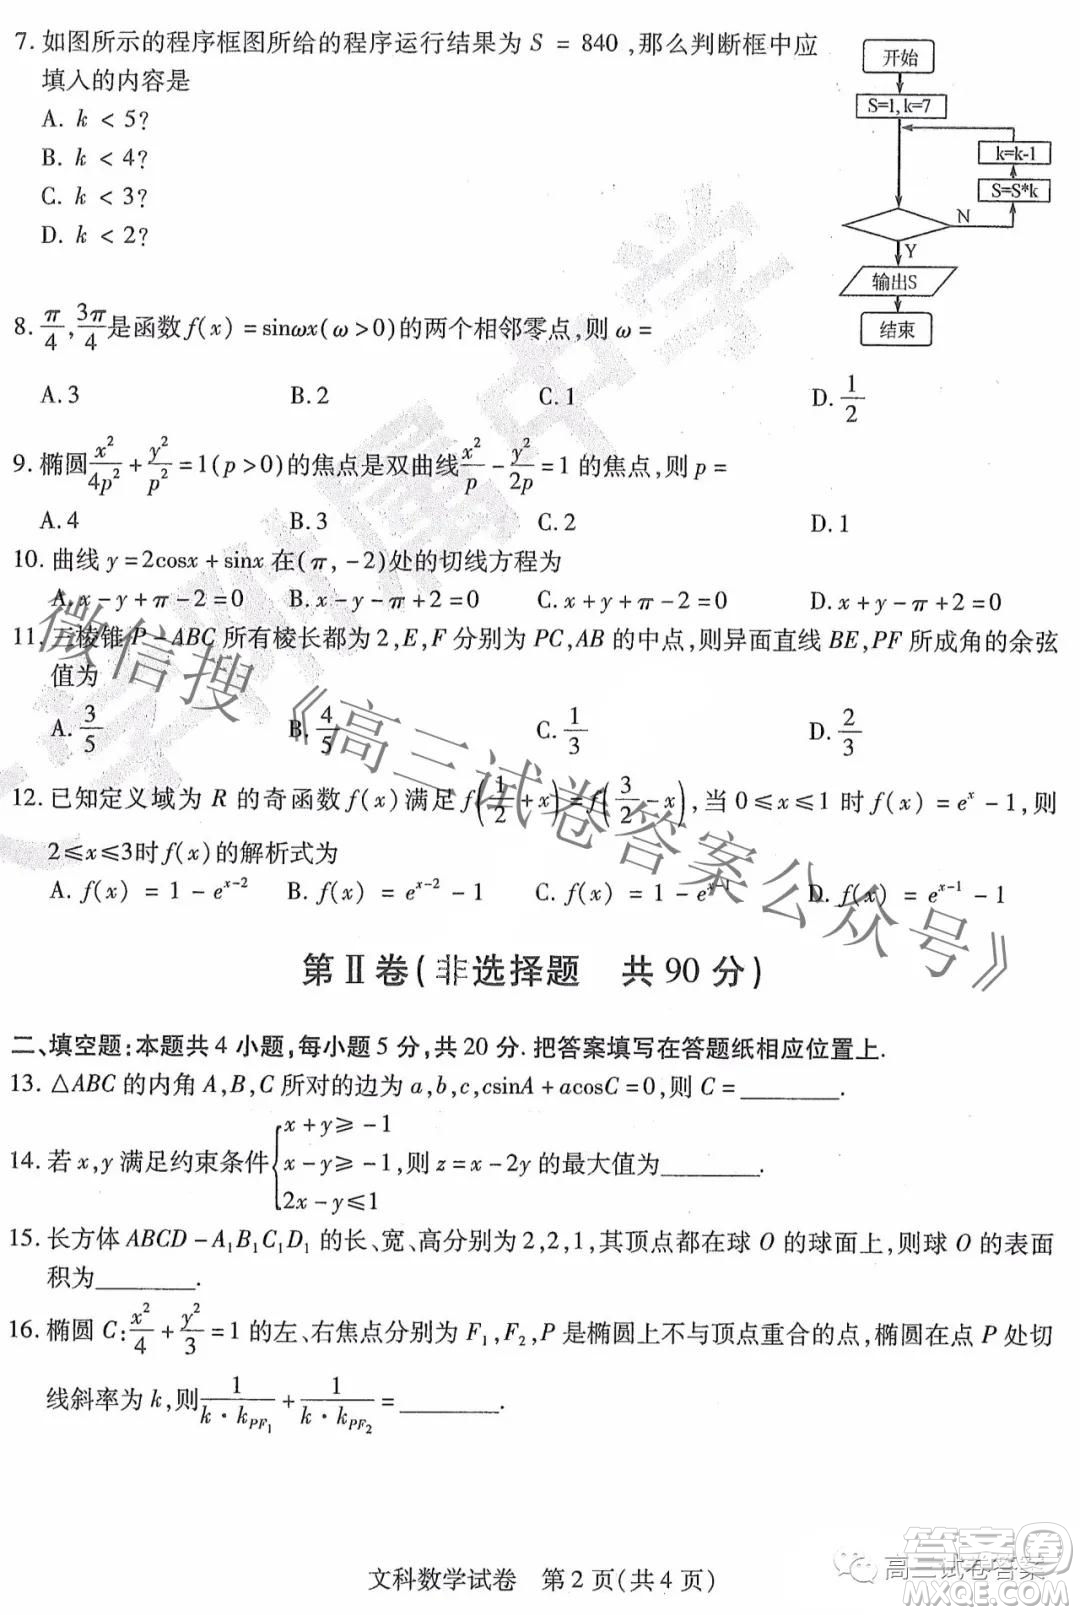 7. 如图所示的程序框图所给的程序运行结果为 S = 840 ,那么判断框中应
填入的内容是
A. k < 5?
B. k < 4?
C. k < 3?
D. k < 2?
开始
S=1, k=7
k=k-1
S=S*k
N
Y
输出S
结束
8. π/4, 3π/4 是函数 f(x) = sinωx(ω>0)的两个相邻零点,则 ω =
A. 3 B. 2 C. 1 D. 1/2
9. 椭圆 x²/4p² + y²/p² = 1(p>0)的焦点是双曲线 x²/p - y²/2p = 1 的焦点,则 p =
A. 4 B. 3 C. 2 D. 1
10. 曲线 y=2cosx+sinx 在(π, -2)处的切线方程为
A. x-y+π-2=0 B. x-y-π+2=0 C. x+y+π-2=0 D. x+y-π+2=0
11. 三棱锥 P-ABC 所有棱长都为 2,E,F 分别为 PC,AB 的中点,则异面直线 BE,PF 所成角的余弦
值为
A. 3/5 B. 4/5 C. 1/3 D. 2/3
12. 已知定义域为 R 的奇函数 f(x)满足 f(1/2+x)=f(3/2-x),当 0≤x≤1 时 f(x) = eˣ - 1,则
2≤x≤3时 f(x)的解析式为
A. f(x) = 1 - eˣ⁻² B. f(x) = eˣ⁻² - 1 C. f(x) = 1 - eˣ⁻¹ D. f(x) = eˣ⁻¹ - 1
第Ⅱ卷(非选择题 共90分)
二、填空题:本题共4小题,每小题5分,共20分.把答案填写在答题纸相应位置上.
13. △ABC 的内角 A,B,C 所对的边为 a,b,c,csinA+acosC=0,则 C = ______.
14. 若 x,y 满足约束条件 { x+y≥-1
x-y≥-1,则 z=x-2y 的最大值为______.
2x-y≤1
15. 长方体 ABCD-A₁B₁C₁D₁ 的长、宽、高分别为 2,2,1,其顶点都在球 O 的球面上,则球 O 的表面
积为______.
16. 椭圆 C: x²/4 + y²/3 = 1 的左、右焦点分别为 F₁,F₂,P 是椭圆上不与顶点重合的点,椭圆在点 P 处切
线斜率为 k,则 1/(k·k_PF₁) + 1/(k·k_PF₂) = ______.
文科数学试卷 第2页(共4页)
微信搜《高三试卷答案公众号》
高三试卷答案
答案圈
MXQE.COM